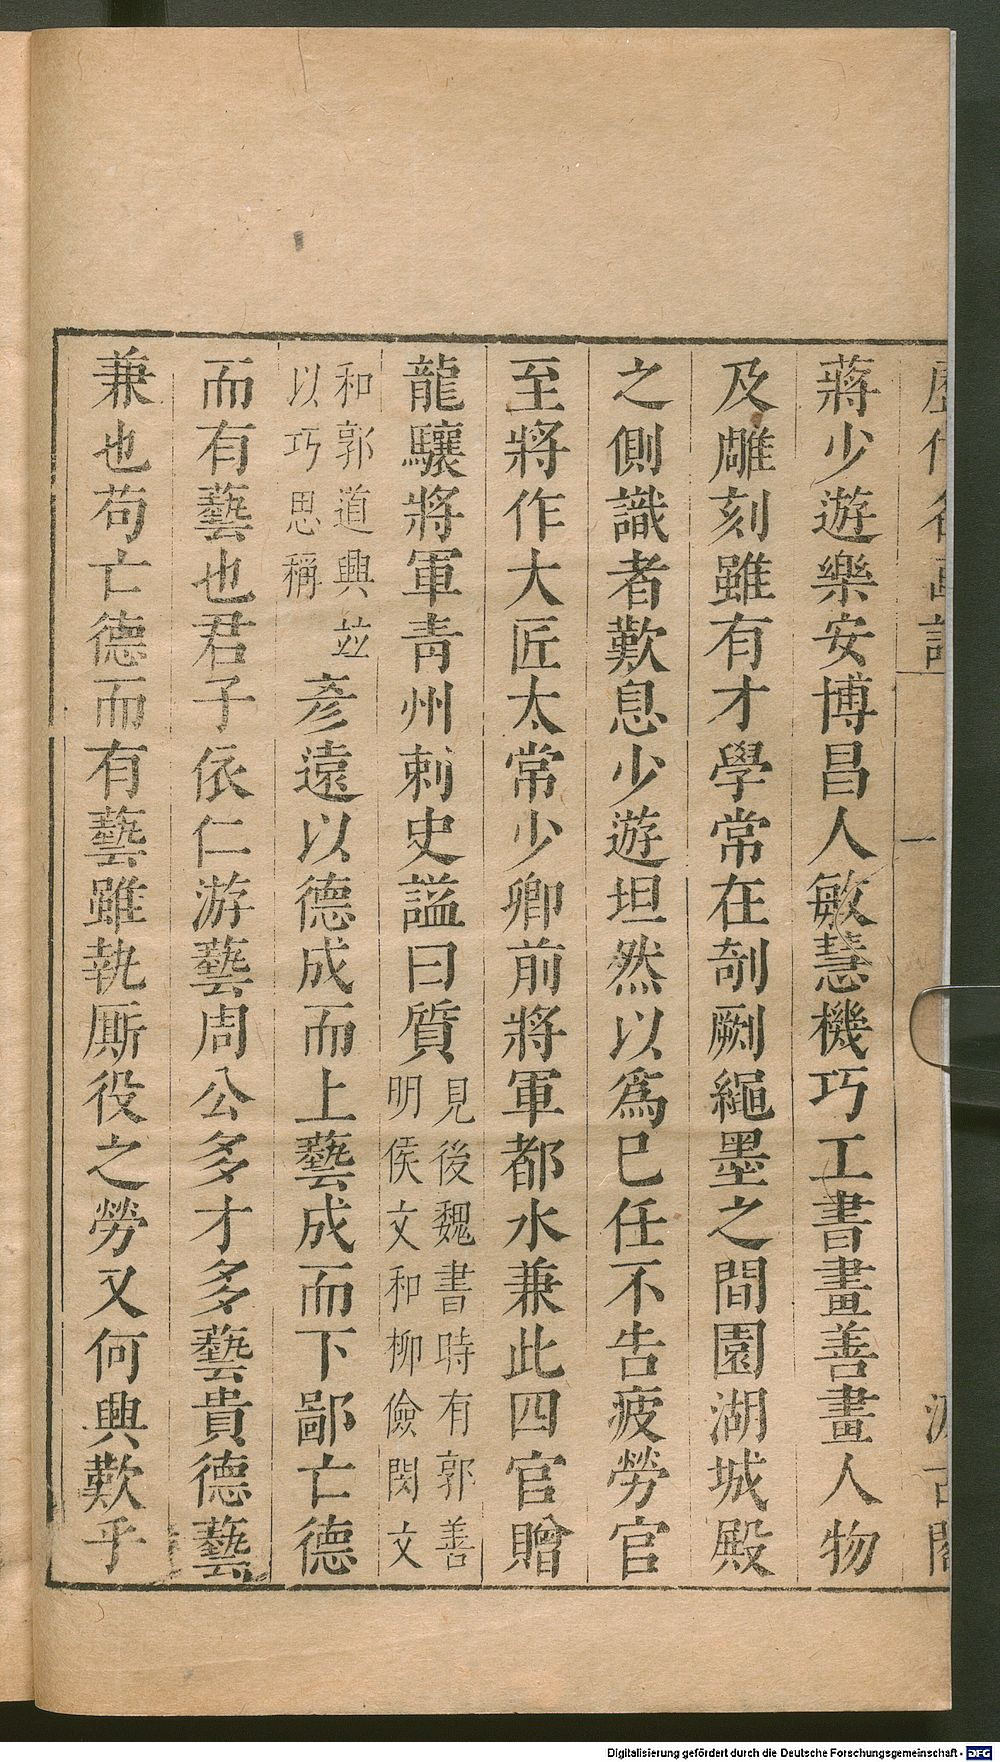 蔣少遊樂安博昌人敏慧機巧工書畫善畫人物
及雕刻雖有才學常在剞劂繩墨之間園湖城殿
之側識者歎息少遊坦然以爲巳任不告疲勞官
至將作大匠太常少卿前將軍都水兼此四官贈
龍驤將軍青州刺史謚曰質見後魏書時有郭善明侯文和柳儉閔文
和郭道興並以巧思稱彥遠以德成而上藝成而下鄙亡德
而有藝也君子依仁游藝周公多才多藝貴德藝
兼也苟亡德而有藝雖執厮役之勞又何興歎乎
一
Digitalisierung gefördert durch die Deutsche Forschungsgemeinschaft - DFG